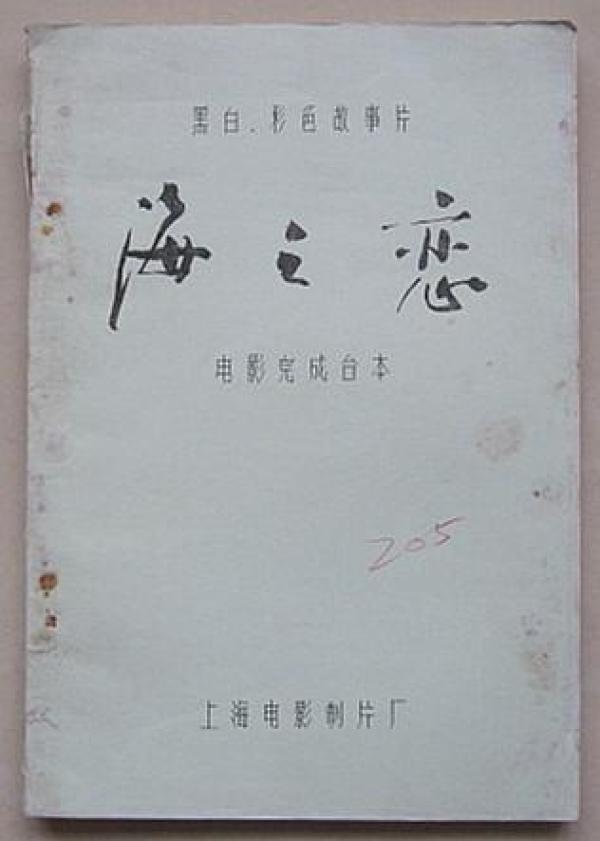 黑白、彩色故事片
海之恋
电影完成台本
205
上海电影制片厂